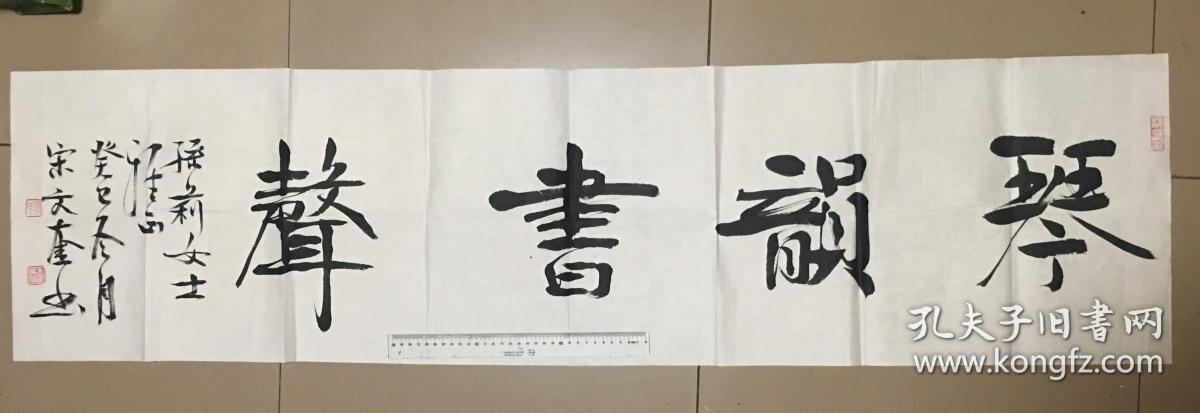 琴韻書聲
張莉女士
雅正
癸巳冬月
宋文奎书
孔夫子旧書网
www.kongfz.com